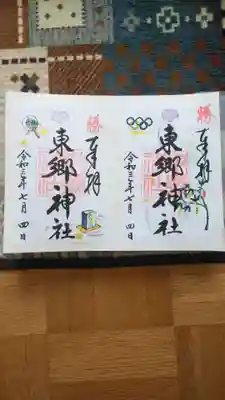 勝
奉拝
東郷神社
令和三年七月四日
勝
奉拝
東郷神社
令和三年七月四日